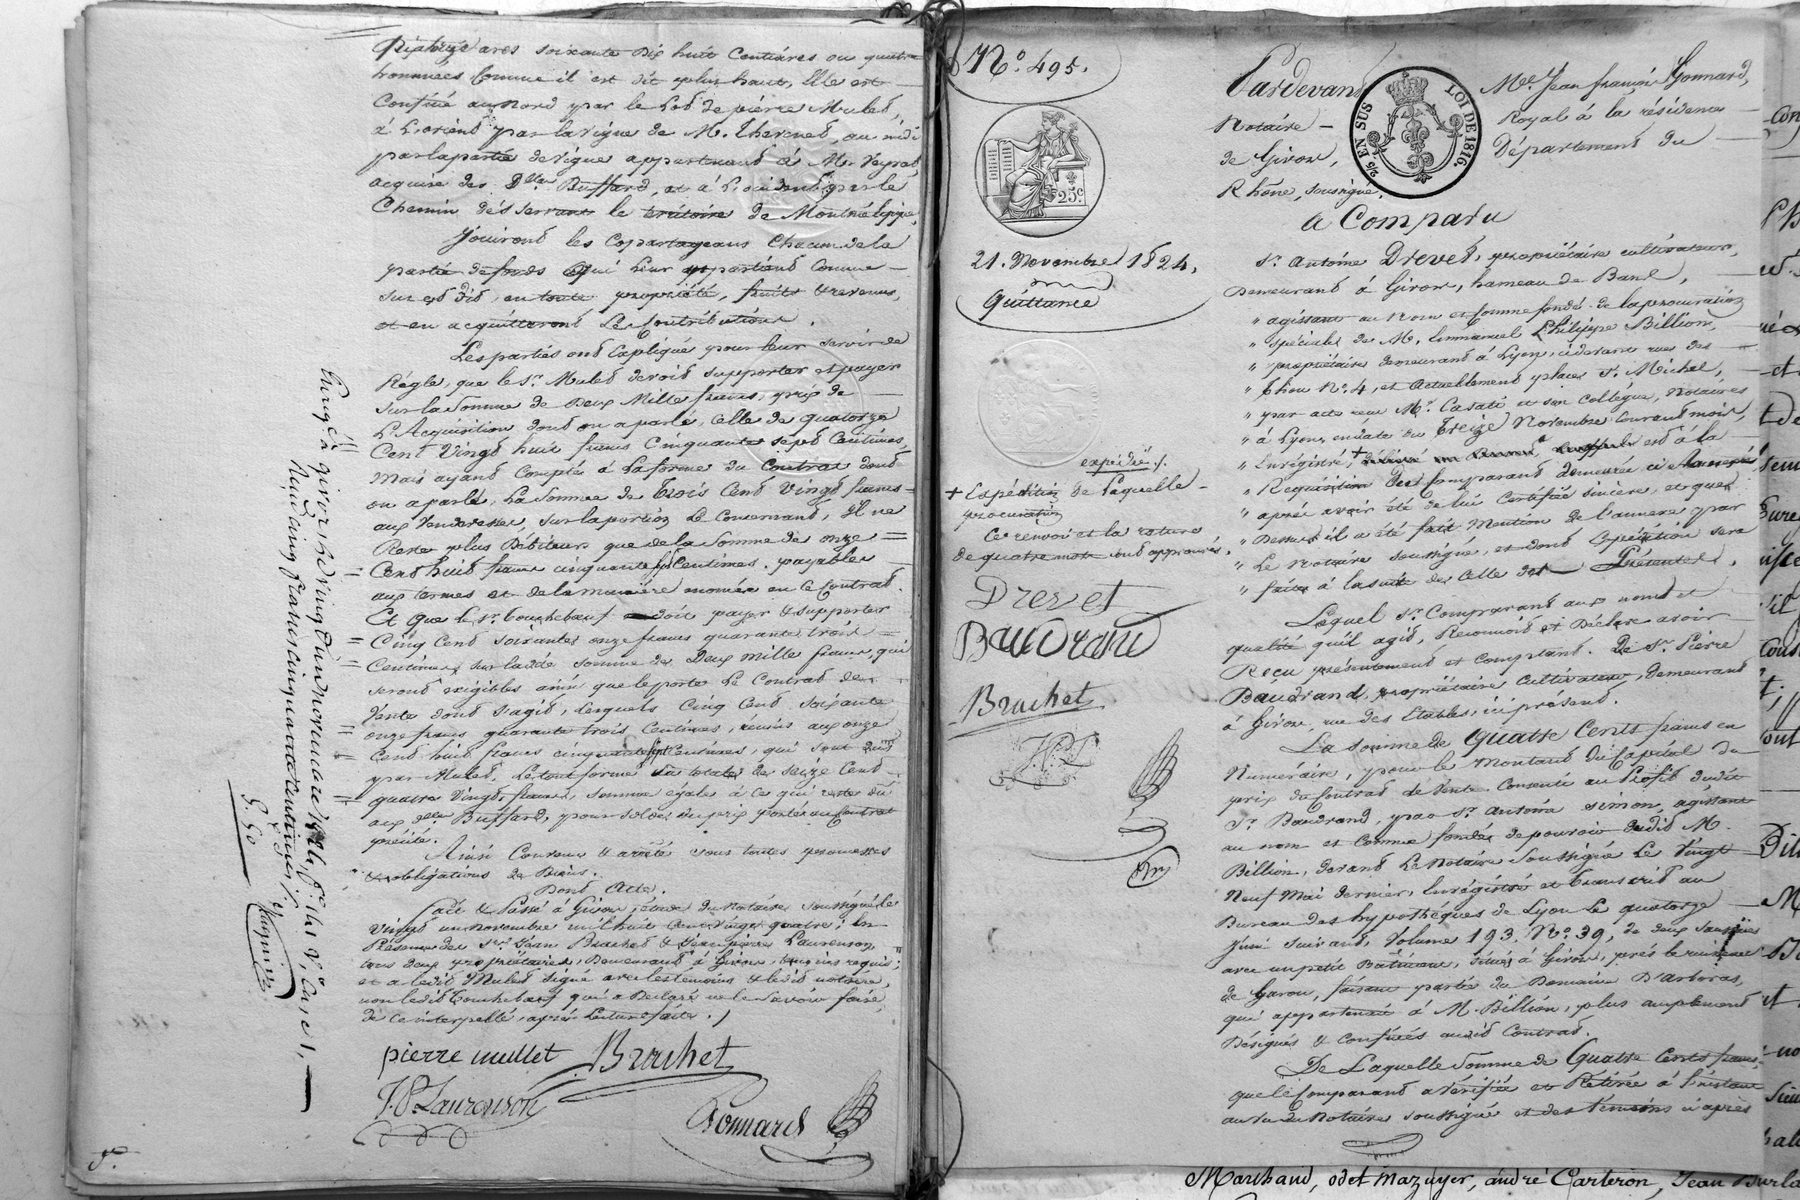 ares soixante dix huit Centiares ou quatre
hommées Comme il est dit plus haut, Elle est
Confiné au nord par le Pré de pierre Mulet,
à L'orient par la vigne de M. Thevenet, au midi
par la partie de vigne appartenant à M. Veyrat
acquise des Dlles Buffard, et à L'occident par le
Chemin désservant le territoire de
Jouiront les Copartageans Chacun de la
partie de fonds qui leur appartiend Comme
sus est dit, en toute propriété, fruits & revenus,
et en acquitteront Les Contributions.
Les parties ont Expliqué pour leur servir de
Régle, que le Sr. Mulet devoit supporter et payer
sur la Somme de Deux Mille francs, prix de
L'Acquisition dont on a parlé, Celle de quatorze
Cent Vingt huit francs Cinquante sept Centimes,
Mais ayant Compté à la forme du Contrat dont
on a parlé, La Somme de Trois Cent Vingt francs
aux Venderesses, sur la portion Le Concernant, Il ne
Reste plus Débiteur que de la Somme de onze
Cent huit francs cinquante sept Centimes, payable
aux termes et de la manière énoncée en le Contrat.
Et que le Sr. Touchebeuf doit payer & supporter
Cinq Cent Soixante onze francs quarante trois
Centimes sur la dite somme de Deux Mille francs, qui
seront exigibles ainsi que le porte Le Contrat de
Vente dont s'agit, Lesquels Cinq Cent Soixante
onze francs quarante trois Centimes, réunis aux onze
Cent huit francs cinquante sept Centimes, qui sont dus
par Mulet, Le tout forme la totale de Seize Cent
quatre Vingt francs, somme égale à ce qui reste dû
aux Dlles Buffard, pour solde du prix porté au Contrat
précité.
Ainsi Convenu & arrêté sous toutes promesses
& obligations de Biens.
Dont Acte.
Fait & Passé à Givors, étude du Notaire Soussigné Le
Vingt un novembre mil huit Cent Vingt quatre; En
Présence des Srs. Jean Brachet & Jean pierre Laurenson,
tous deux propriétaires, Demeurant à Givors, témoins requis;
et a ledit Mulet signé avec les témoins & ledit notaire,
non ledit Touchebeuf qui a Déclaré ne le Savoir faire,
de ce interpellé, après Lecture faite.
pierre mullet Brachet
J. P. Laurenson
Gonnard
à givors, le vingt
Reçu cinq francs cinquante centimes
5.50
N°. 495.
25c.
21. Novembre 1824,
Quittance
expédié.
+ Expédition de Laquelle
procuration
Ce renvoi et la rature
de quatre mots sont approuvés.
Drevet
Baudrand
Brachet
J. P. L
Pardevant Me. Jean françois Gonnard,
Notaire Royal à la résidence
de Givors, Département du
Rhône, soussigné,
25 EN SUS
LOI DE 1816.
a Comparu
Sr. Antoine Drevet, propriétaire cultivateur,
Demeurant à Givors, hameau de Bans,
" agissant au Nom et Comme fondé de la procuration
" spéciale de M. Emmanuel Philippe Billion,
" propriétaire demeurant à Lyon, cidevant rue des
" N°. 4, et Actuellement place St. Michel,
" par acte reçu Me. Casati et son Collégue, Notaires
" à Lyon, en date du Treize Novembre Courant mois,
" Enregistré, + est à la
" Requisition du Comparant demeurée ci Annexée
" après avoir été de lui Certifiée sincère, et que
" Dessus il a été fait Mention de l'annexe par
" Le Notaire soussigné, et dont Expédition sera
" faite à la suite de Celle des Présentes.
Lequel Sr. Comparant aux noms et
qualité qu'il agit, Reconnoit et Déclare avoir
Reçu présentement et Comptant, De Sr. Pierre
Baudrand, propriétaire Cultivateur, demeurant
à Givors, rue des Etables, ici présent.
La Somme de Quatre Cents francs en
Numéraire, pour le Montant du Capital du
prix du Contrat de Vente Consenti au Profit dudit
Sr. Baudrand, par Sr. Antoine Simon, agissant
au nom et Comme fondé de pouvoir dudit M.
Billion, devant Le Notaire Soussigné Le Vingt
Neuf Mai dernier, Enregistré et Transcrit au
Bureau des hypothéques de Lyon Le quatorze
Juin Suivant, Volume 193, N°. 39, de deux
avec un petit Bâtiment, situés à Givors, près le ruisseau
de Garon, faisant partie du Domaine D'arboras,
qui appartenait à M. Billion, plus amplement
Désignés & Confinés audit Contrat.
De Laquelle Somme de Quatre Cents francs,
que le Comparant a Vérifiée et Retirée à l'instant
au vu du Notaire soussigné et des témoins ci après
Marchand, odet Mazuyer, andré Carteron, Jean